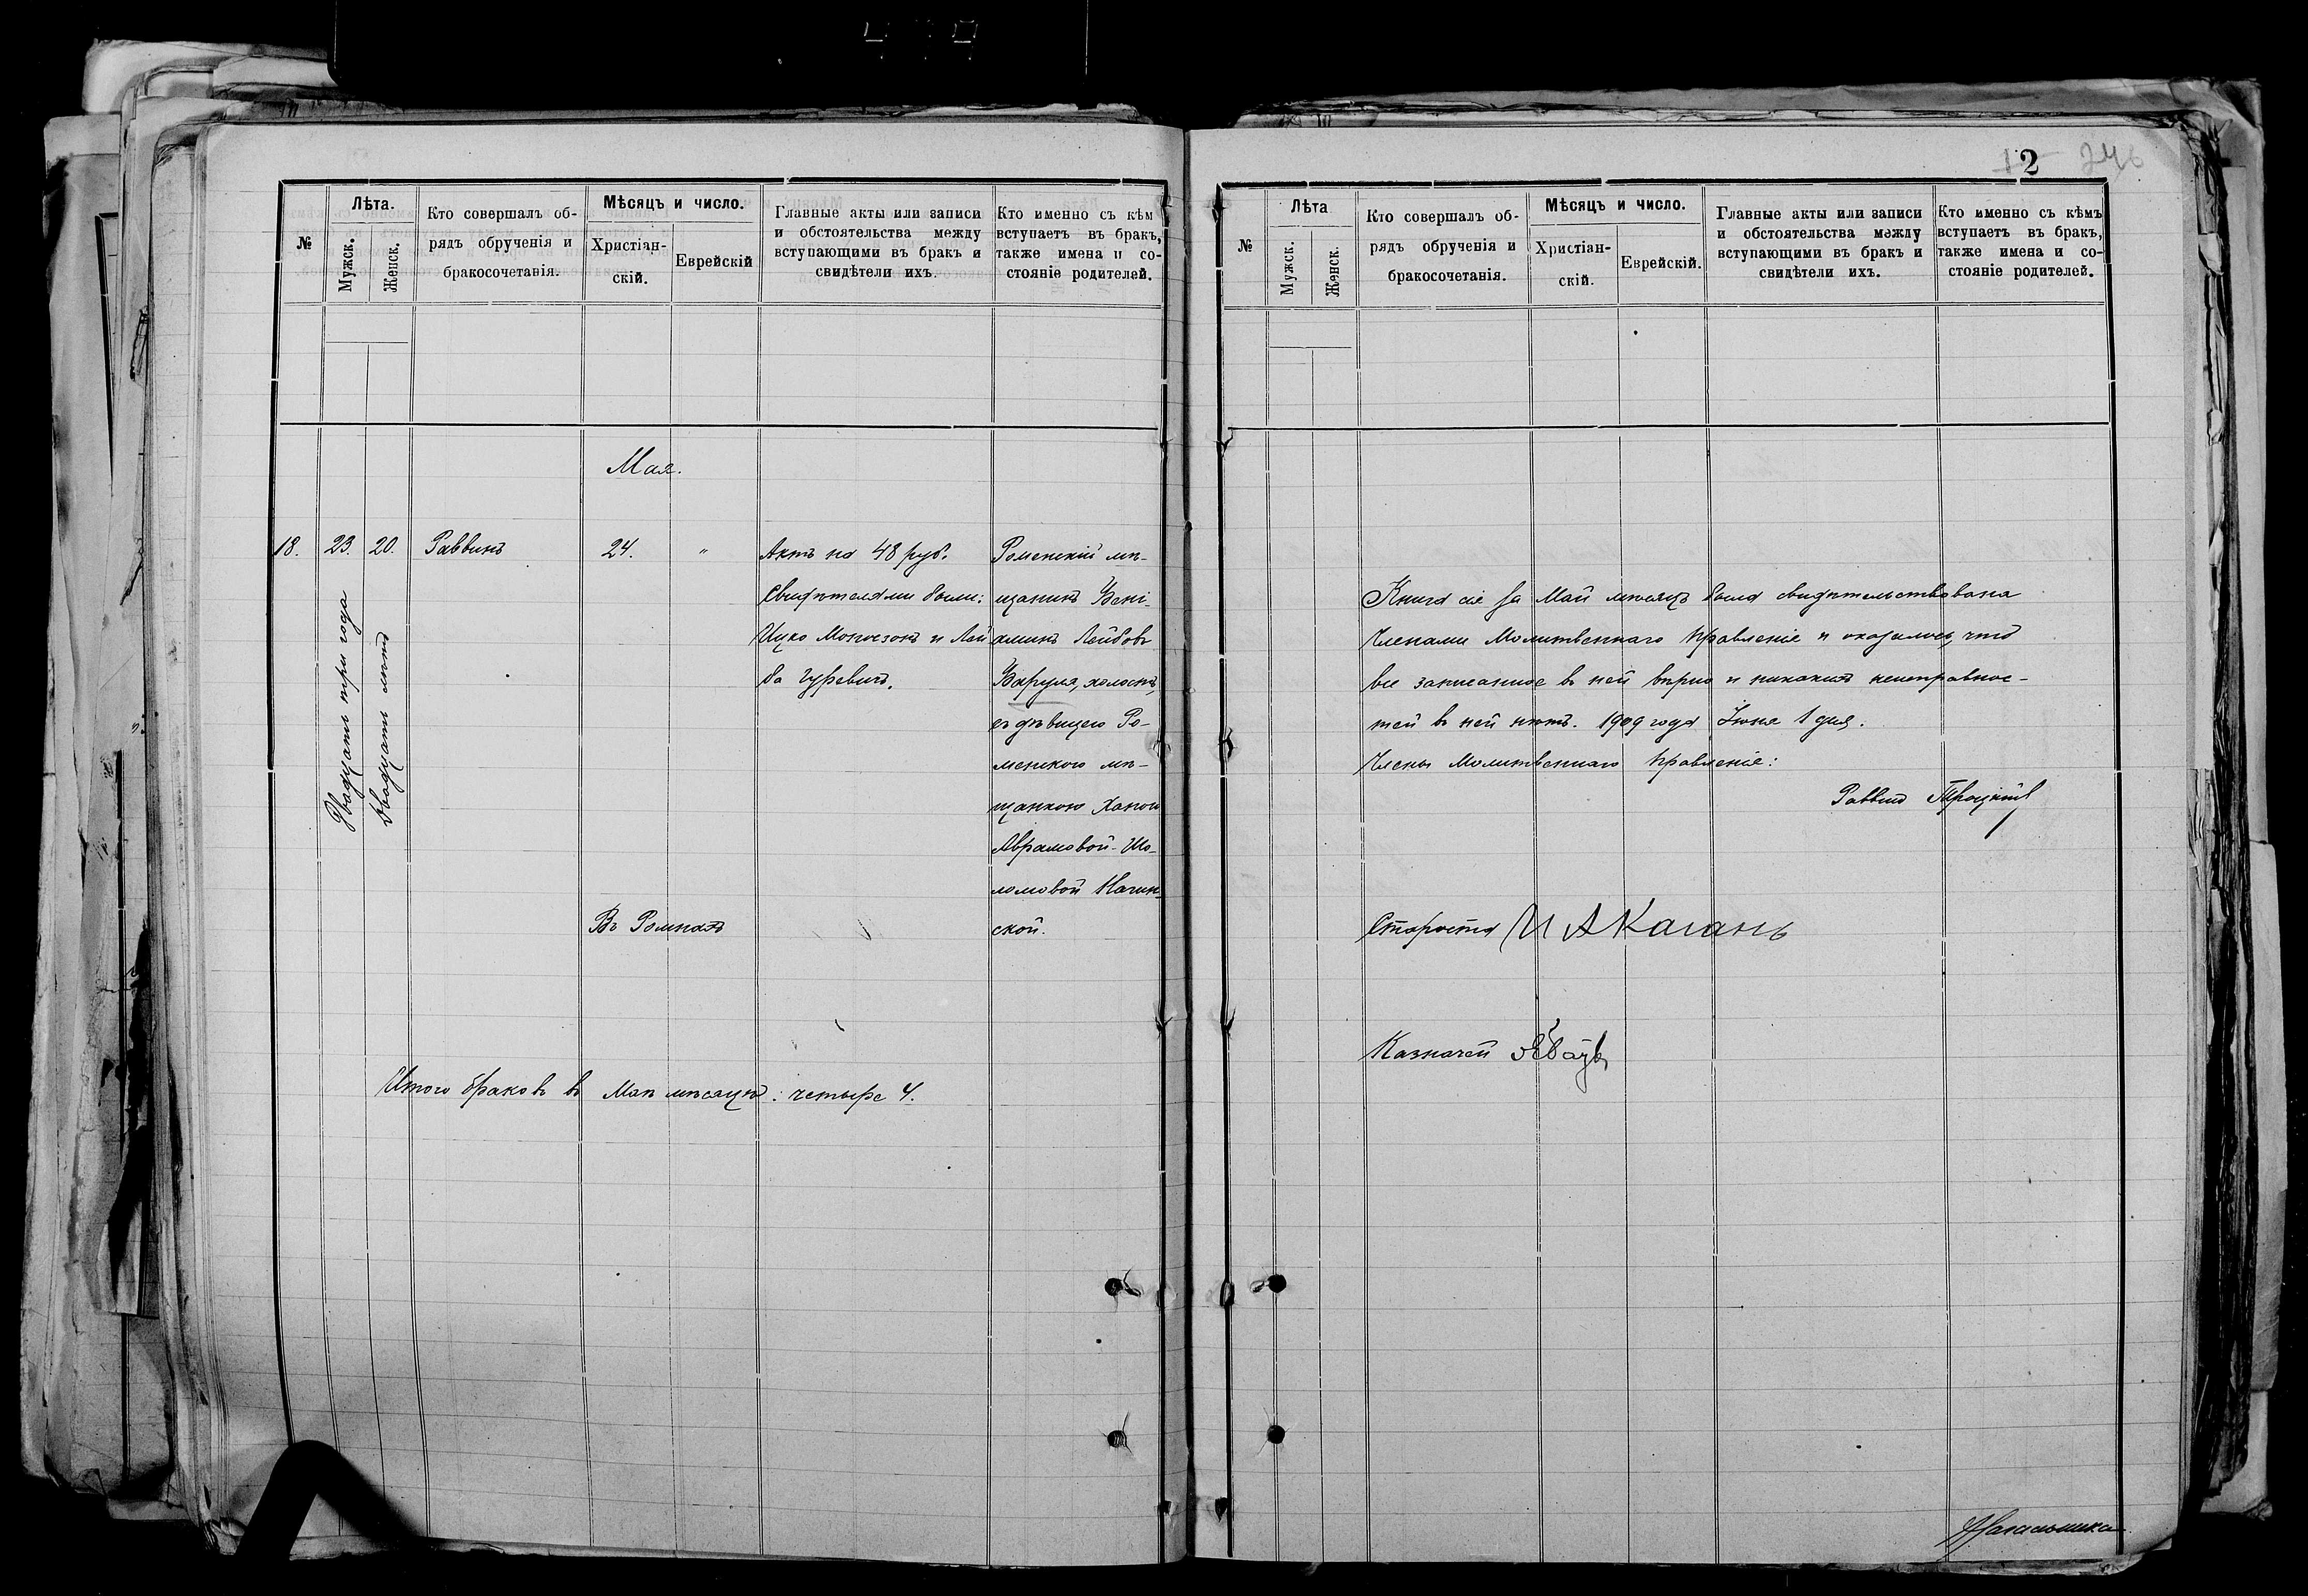 №
Лѣта.
Мужск.
Женск.
Кто совершалъ об-
рядъ обрученія и
бракосочетанія.
Мѣсяцъ и число.
Христіан-
скій.
Еврейскій
Главные акты или записи
и обстоятельства между
вступающими въ бракъ и
свидѣтели ихъ.
Кто именно съ кѣм
вступаетъ въ бракъ,
также имена и со-
стояніе родителей.
Мая.
18.
23.
Двадцать три года
20.
Двадцать лѣтъ
Раввинъ
24.
"
Актъ на 48 руб.
Свидѣтелями были:
Ицко Моносзонъ и Лей
ба Гуревичъ.
Роменскій мѣ-
щанинъ Бені-
аминъ Лейбовъ
холостъ,
съ дѣвицею Ро-
менскою мѣ-
щанкою Ханою
Абрамовой-Шо-
ломовой
ской.
Въ Ромнахъ
Итого браковъ въ Маѣ мѣсяцѣ: четыре 4.
2
246
№
Лѣта
Мужск.
Женск.
Кто совершалъ об-
рядъ обрученія и
бракосочетанія.
Мѣсяцъ и число.
Христіан-
скій.
Еврейскій.
Главные акты или записи
и обстоятельства между
вступающими въ бракъ и
свидѣтели ихъ.
Кто именно съ кѣмъ
вступаетъ въ бракъ,
также имена и со-
стояніе родителей.
Книга сія за Май мѣсяцъ была свидѣтельствована
Членами Молитвеннаго Правленіе и оказалось, что
все записанное въ ней вѣрно и никакихъ неисправнос-
тей въ ней нѣтъ. 1909 года Іюня 1 дня.
Члены Молитвеннаго Правленіе:
Раввинъ Троцкій
Староста И А Каганъ
Казначей